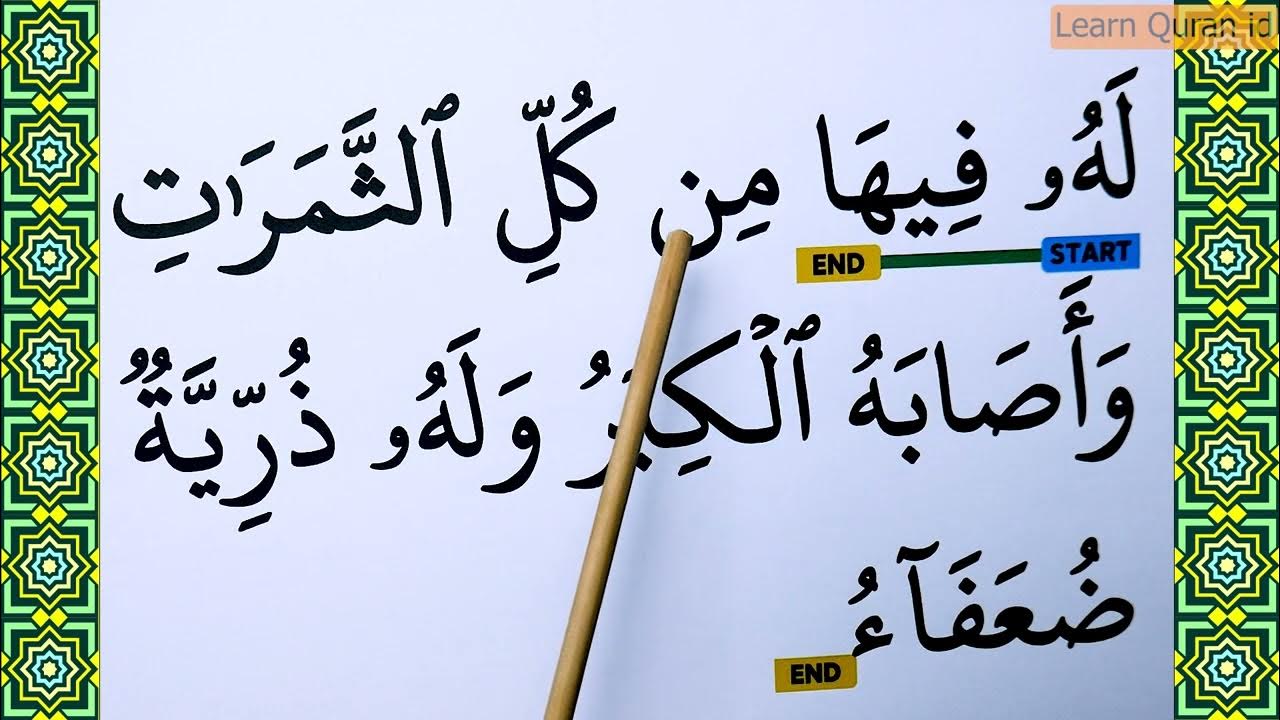 Learn Quran id
لَهُۥ فِيهَا مِن كُلِّ ٱلثَّمَرَٰتِ
END START
وَأَصَابَهُ ٱلْكِبَرُ وَلَهُۥ ذُرِّيَّةٌ
ضُعَفَآءُ
END